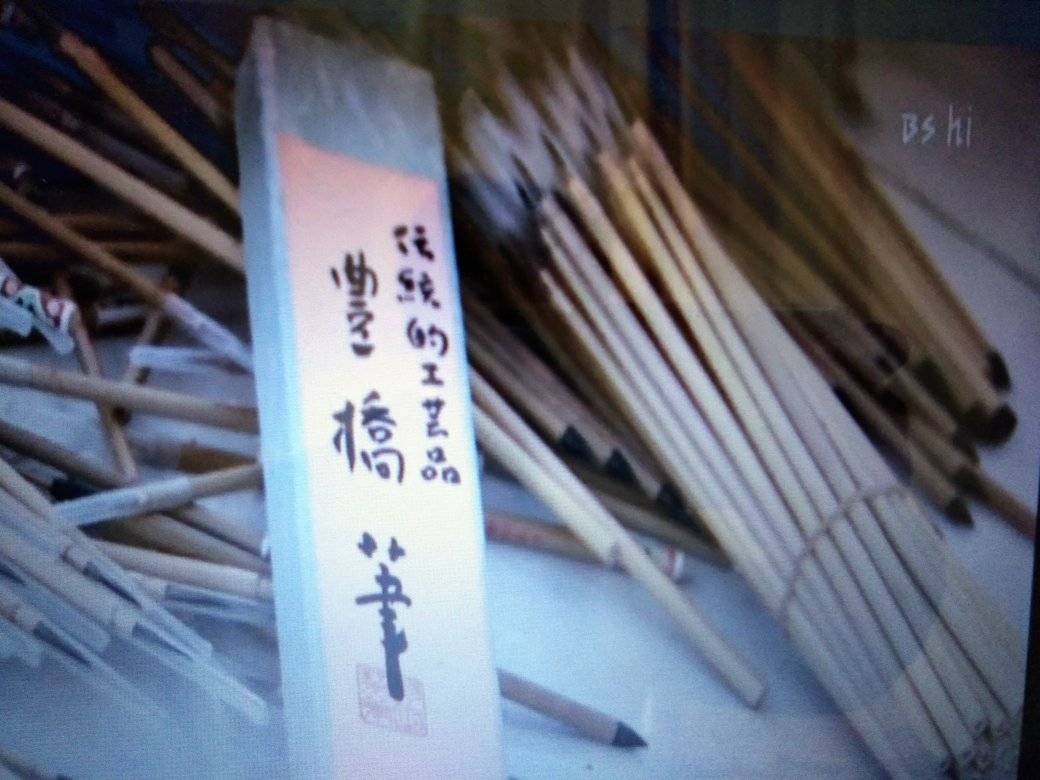 伝統的工芸品
豊橋筆
BS hi